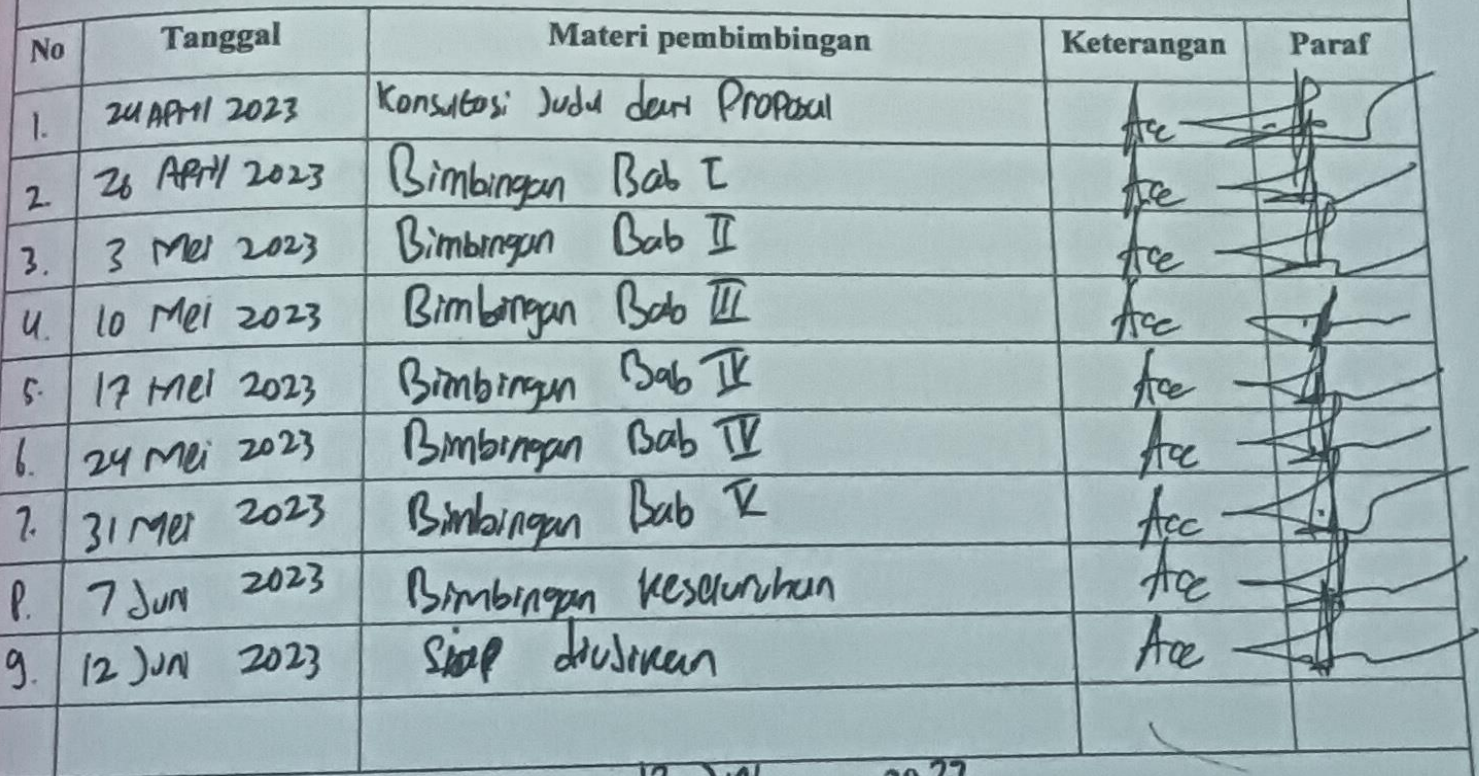 No Tanggal Materi pembimbingan Keterangan Paraf
1. 24 April 2023 Konsultasi Judul dan Proposal Acc
2. 26 April 2023 Bimbingan Bab I Acc
3. 3 Mei 2023 Bimbingan Bab II Acc
4. 10 Mei 2023 Bimbingan Bab III Acc
5. 17 Mei 2023 Bimbingan Bab IV Acc
6. 24 Mei 2023 Bimbingan Bab IV Acc
7. 31 Mei 2023 Bimbingan Bab V Acc
8. 7 Juni 2023 Bimbingan keseluruhan Acc
9. 12 Juni 2023 Siap diujikan Acc